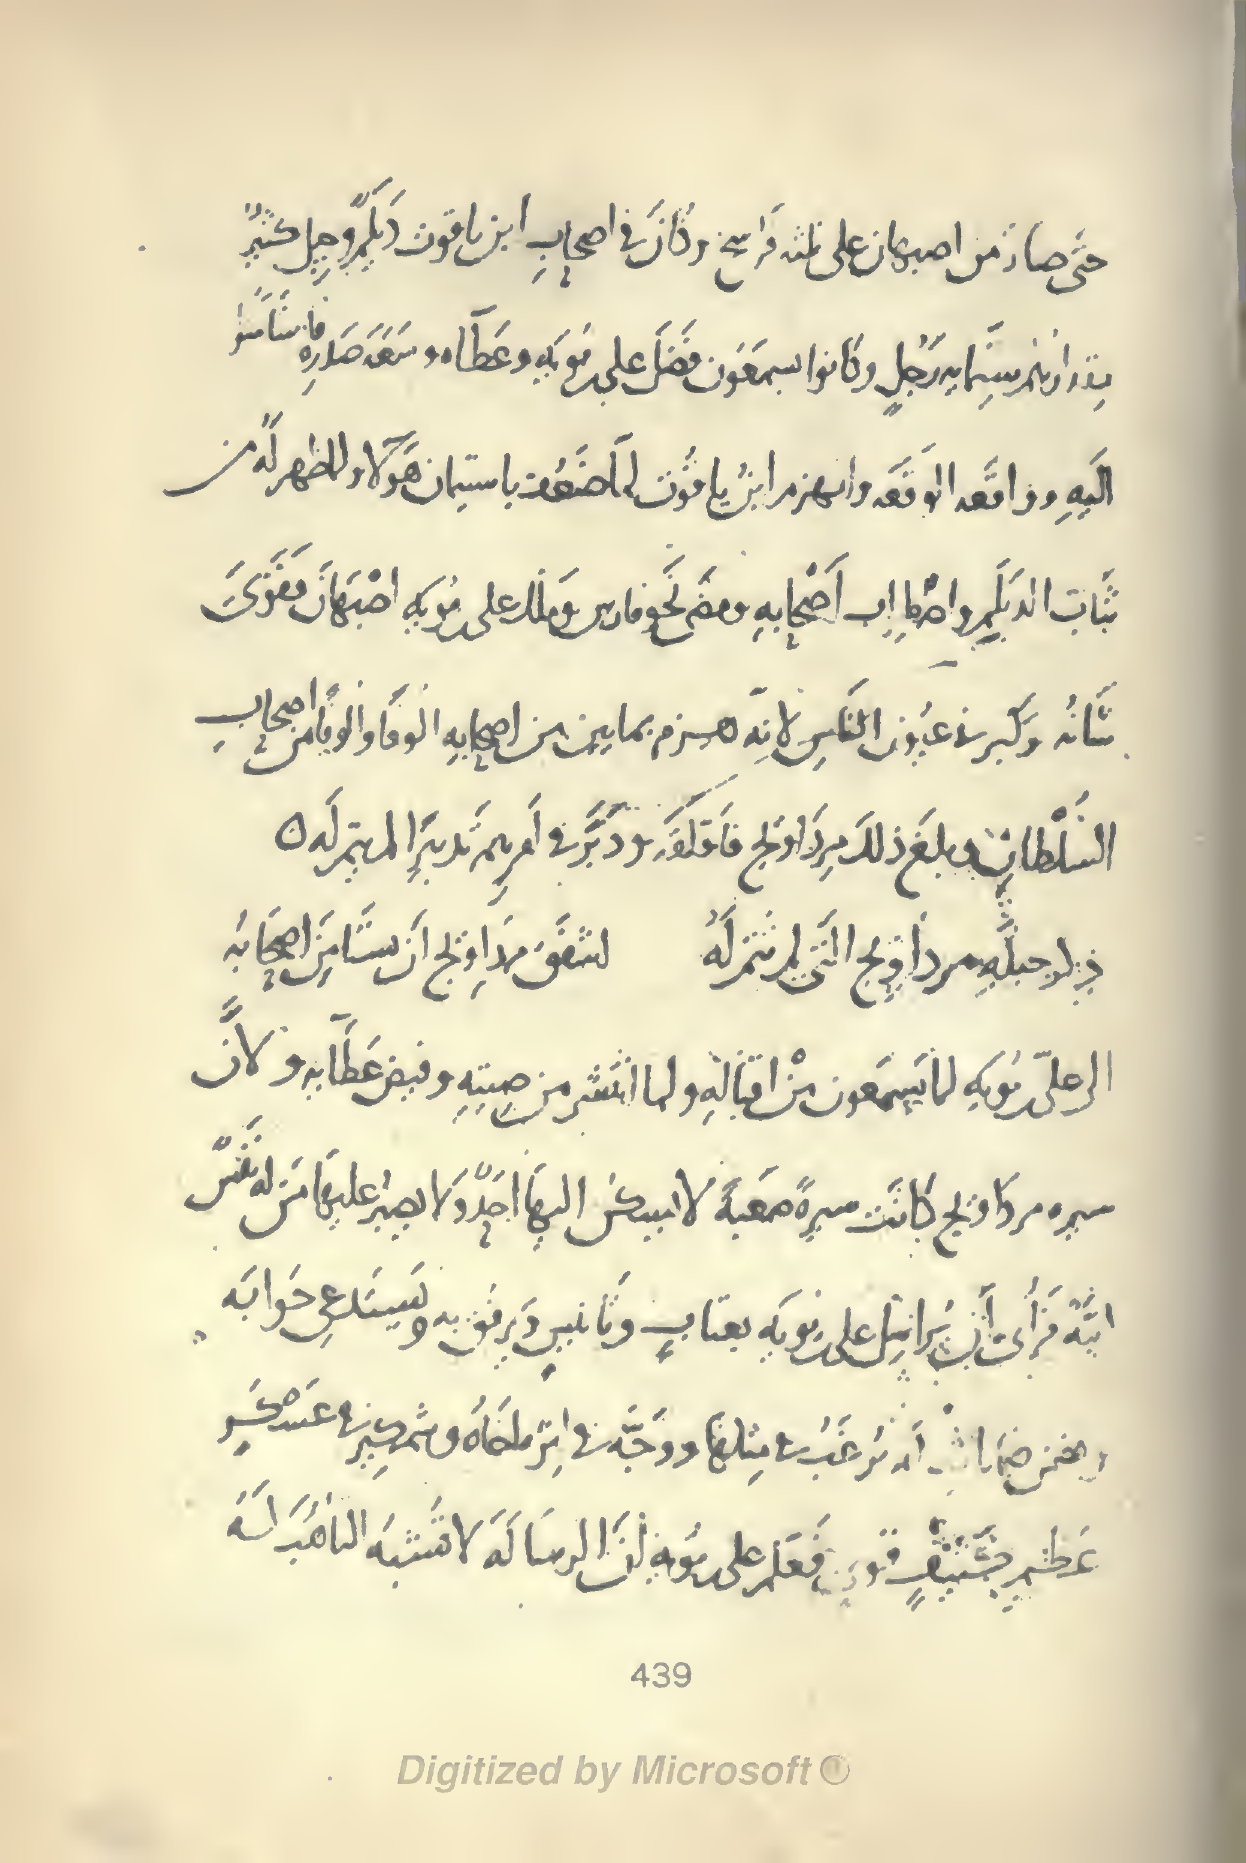 حتى صار من اصبهان على ثلثه فراسخ وكان في اصحابِ ابن ياقوت دَيلمٌ وجيل كثيرٌ
مقدارهم ستمايه رَجُلٍ وكانوا يسمعَون فَضلَ على بن بُوَيه وعَطآه وسَعَه صَدرِه فاستأمنوا
اليَهِ وواقعَه الوَقعَه وانهزم ابنُ ياقُوت لمَا ضَعُف باستيمان هَوُلآ ولما ظهر لَه من
ثَبَات الديَلَم واضْطِراب اَصْحابِهِ ومضَى نحَو فارس وَملك على بن بُوَيه اصْبَهَان فقَوى
شَانُه وكَبر في عيُون الناسِ لانّه هزم بمايتين من اصحابِهِ الوفًا والوفًا من اصحابِ
السُلْطان وبلغَ ذلك مردَاويج فاَقلقَه ودَبَّر في اَمرِهم تَدبيَرًا لم يتم لَه ٥
ذِكر حيلَهِ مرداويج التى لم تتم لَهُ لشفَق مردَاويج اَن يستَامِنَ اصحَابُه
الى علىّ بن بُوَيه لما يَسمَعون مْن اقبَالِهِ ولما انتَشر من صِيتِهِ وفيض عَطآيه ولاَنَّ
سيره مرداويج كانَت سيرةً صَعبةً لا يسكن اليهَا احَدٌ ولا يصبر عليهَا مَن له نفَسٌ
ابيَّهٌ فرَأى اَن يُراسِل على بن بُويَه بعتابٍ وتَانيبٍ ويَرفُق به ويَستَدعى جَوابَه
عَسْكَرٍ
عَظيم كثيفٍ فعَلم على بن بُويه اَنَّ الرسَالَه لا تُشبه
439
Digitized by Microsoft ®